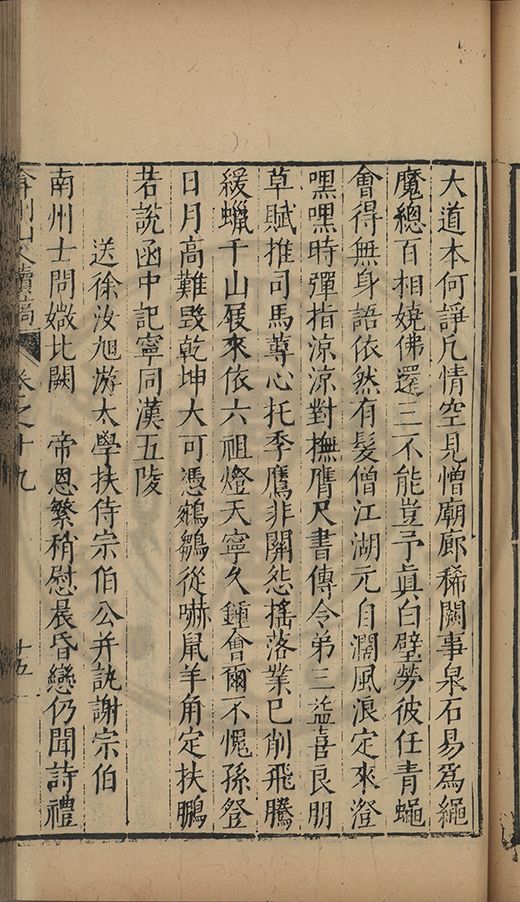 大道本何諍凡情空見憎廟廊稀闕事泉石易爲繩
魔總百相嬈佛還三不能豈予眞白璧勞彼任青蠅
會得無身語依然有髮僧江湖元自濶風浪定來澄
嘿嘿時彈指涼涼對撫膺尺書傳令弟三益喜良朋
草賦推司馬蓴心托季鷹非關怨搖落業已削飛騰
緩蠟千山屐來依六祖燈天寧久鍾會爾不愧孫登
日月高難毀乾坤大可憑鵷鶵從嚇鼠羊角定扶鵬
若說函中記寧同漢五陵
送徐汝旭游太學扶侍宗伯公并訊謝宗伯
南州士問媺北闕 帝恩繁稍慰晨昏戀仍聞詩禮
弇州山人續稿 卷之十九 十五